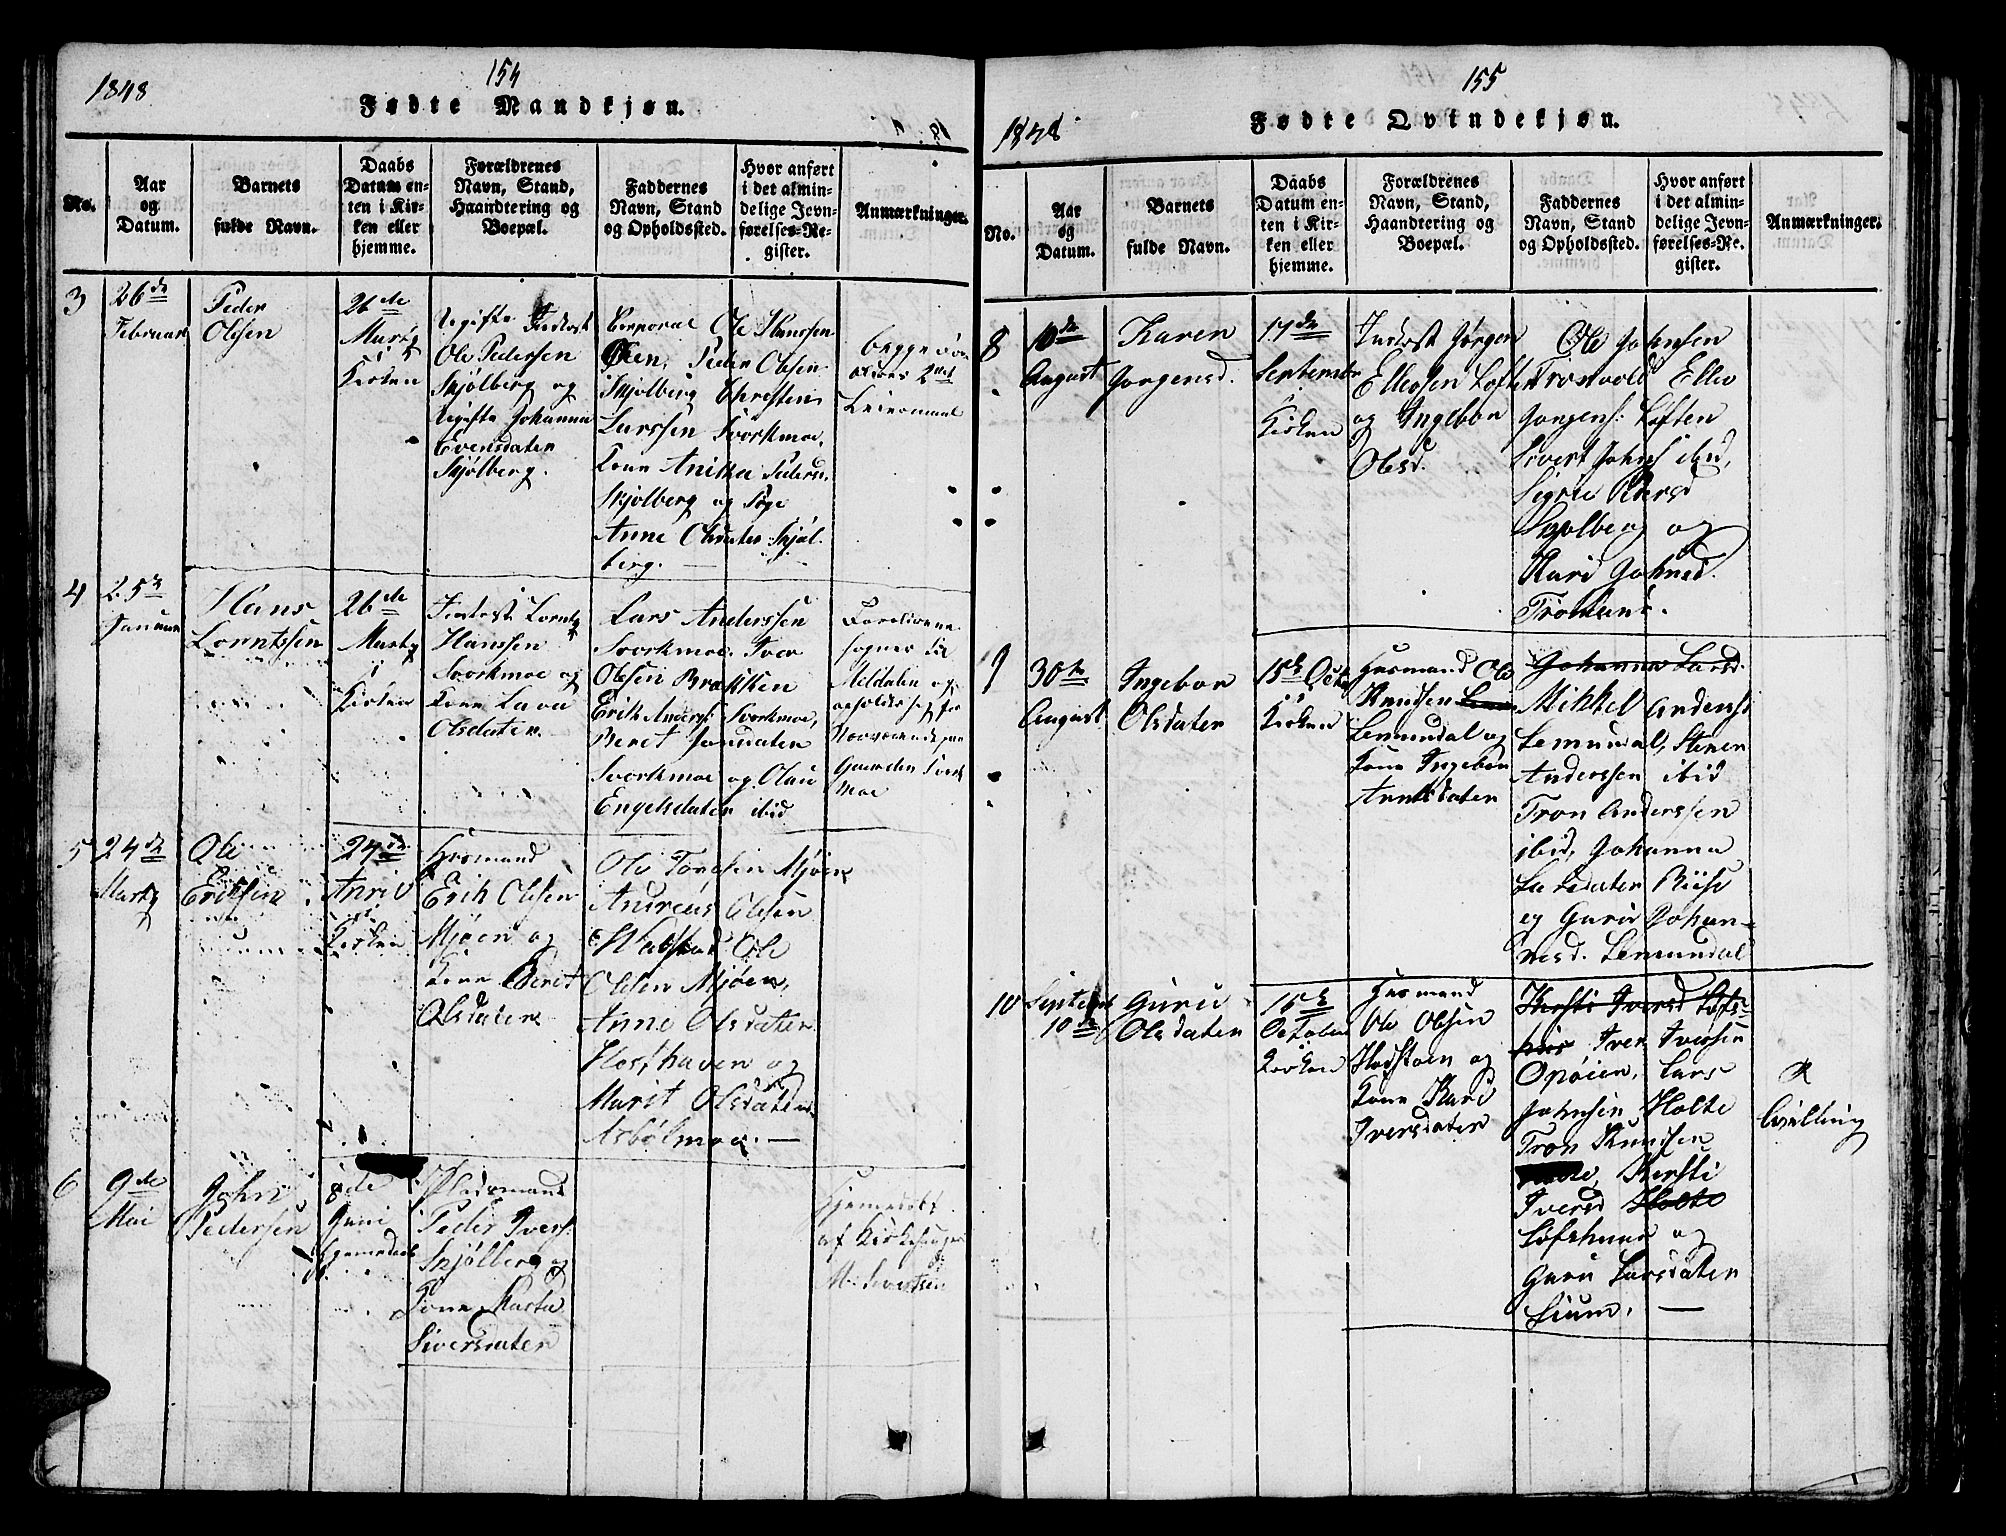 1848
154
Fødte Mandkjøn.
No.
Aar
og
Datum.
Barnets
fulde Navn.
Daabs
Datum en-
ten i Kir-
ken eller
hjemme.
Forældrenes
Navn, Stand,
Haandtering og
Boepæl.
Faddernes
Navn, Stand
og Opholdssted.
Hvor anført
i det almin-
delige Jevn-
førelses-Re-
gister.
Anmærkninger.
3
26de
Februar
Peder
Olsen
26de
Marts
i
Kirken
Ugifte Inderst
Ole Pedersen
Skjølberg og
Ugifte Johanna
Evensdatter
Skjølberg.
Corporal Ole Hanssen
Øien, Peder Olsen
Skjølberg Christen
Larssen Svorkmoe,
Kone Anika Pedersd.
Skjølberg og Pige
Anne Olsdatter Skjøl-
berg.
begge
2det
Leiermaal
4
25de
Januar
Hans
Lorntssen
26de
Marts
i
Kirken
Inderst Lornts
Hanssen
Svorkmoe og
Kone Lava
Olsdatter
Lars Anderssen
Svorkmoe. Iver
Olssen Brækken
Erik Anders: Svorkmoe,
Beret Jonsdatter
Svorkmoe og Olau
Engelsdatter ibid
Forældrene
sogner til
Meldalen og
opholder sig for
Nærværende paa
Gaarden Svork
moe
5
24de
Marts
Ole
Eriksen
24de
April
i
Kirken
Huusmand
Erik Olssen
Mjøen og
Kone Beret
Olsdatter
Ole Toresen Mjøen
Andreas Olssen
Walstad Ole
Olsen Mjøen,
Anne Olsdatter
Hosthaven og
Marit Olsdatter
Asbølmoe. —
6
9de
Mai
John
Pedersen
8de
Juni
hjemmedøbt
Pladsmand
Peder Ivers:
Skjølberg og
Kone Marta
Siversdatter
Hjemmedøbt
af Kirkesanger
M. Sivertsen
1848
155
Fødte Qvindekjøn.
No.
Aar
og
Datum.
Barnets
fulde Navn.
Daabs
Datum en-
ten i Kir-
ken eller
hjemme.
Forældrenes
Navn, Stand,
Haandtering og
Boepæl.
Faddernes
Navn, Stand
og Opholdssted.
Hvor anført
i det almin-
delige Jevn-
førelses-Re-
gister.
Anmærkninger.
8
10de
August
Karen
Jørgensd.
17de
September
i
Kirken
Inderst Jørgen
Ellevsen Loften
og Ingebor
Olesd.
Ole Johnsen
Tronvold Ellev
Jørgens: Loften
Sivert Johns ibid,
Sigrie Pedersd
Skjølberg og
Kari Johnsd.
9
30te
August
Ingebor
Olsdatter
15de Octo
i
Kirken
Huusmand Ole
Knudsen
Lemundal og
Kone Ingebor
Arntsdatter
Johanna Larsd.
Mikkel Anders:
Lemundal, Stener
Anderssen ibid
Tron Anderssen
ibid, Johanna
Larsdatter Riise
og Guru Johan-
nesd. Lemundal
10
September
10de
Guru
Olsdatter
15de
October
i
Kirken
Huusmand
Ole Olssen
og
Kone Kari
Iversdatter
Kersti Iversd Løfs-
huus Iver Iversen
Opøien, Lars
Johnsen Holte
Tron Knudsen
Kersti
Iversd Holte
Løfshuus og
Guru Larsdatter
Lium. —
Tvilling